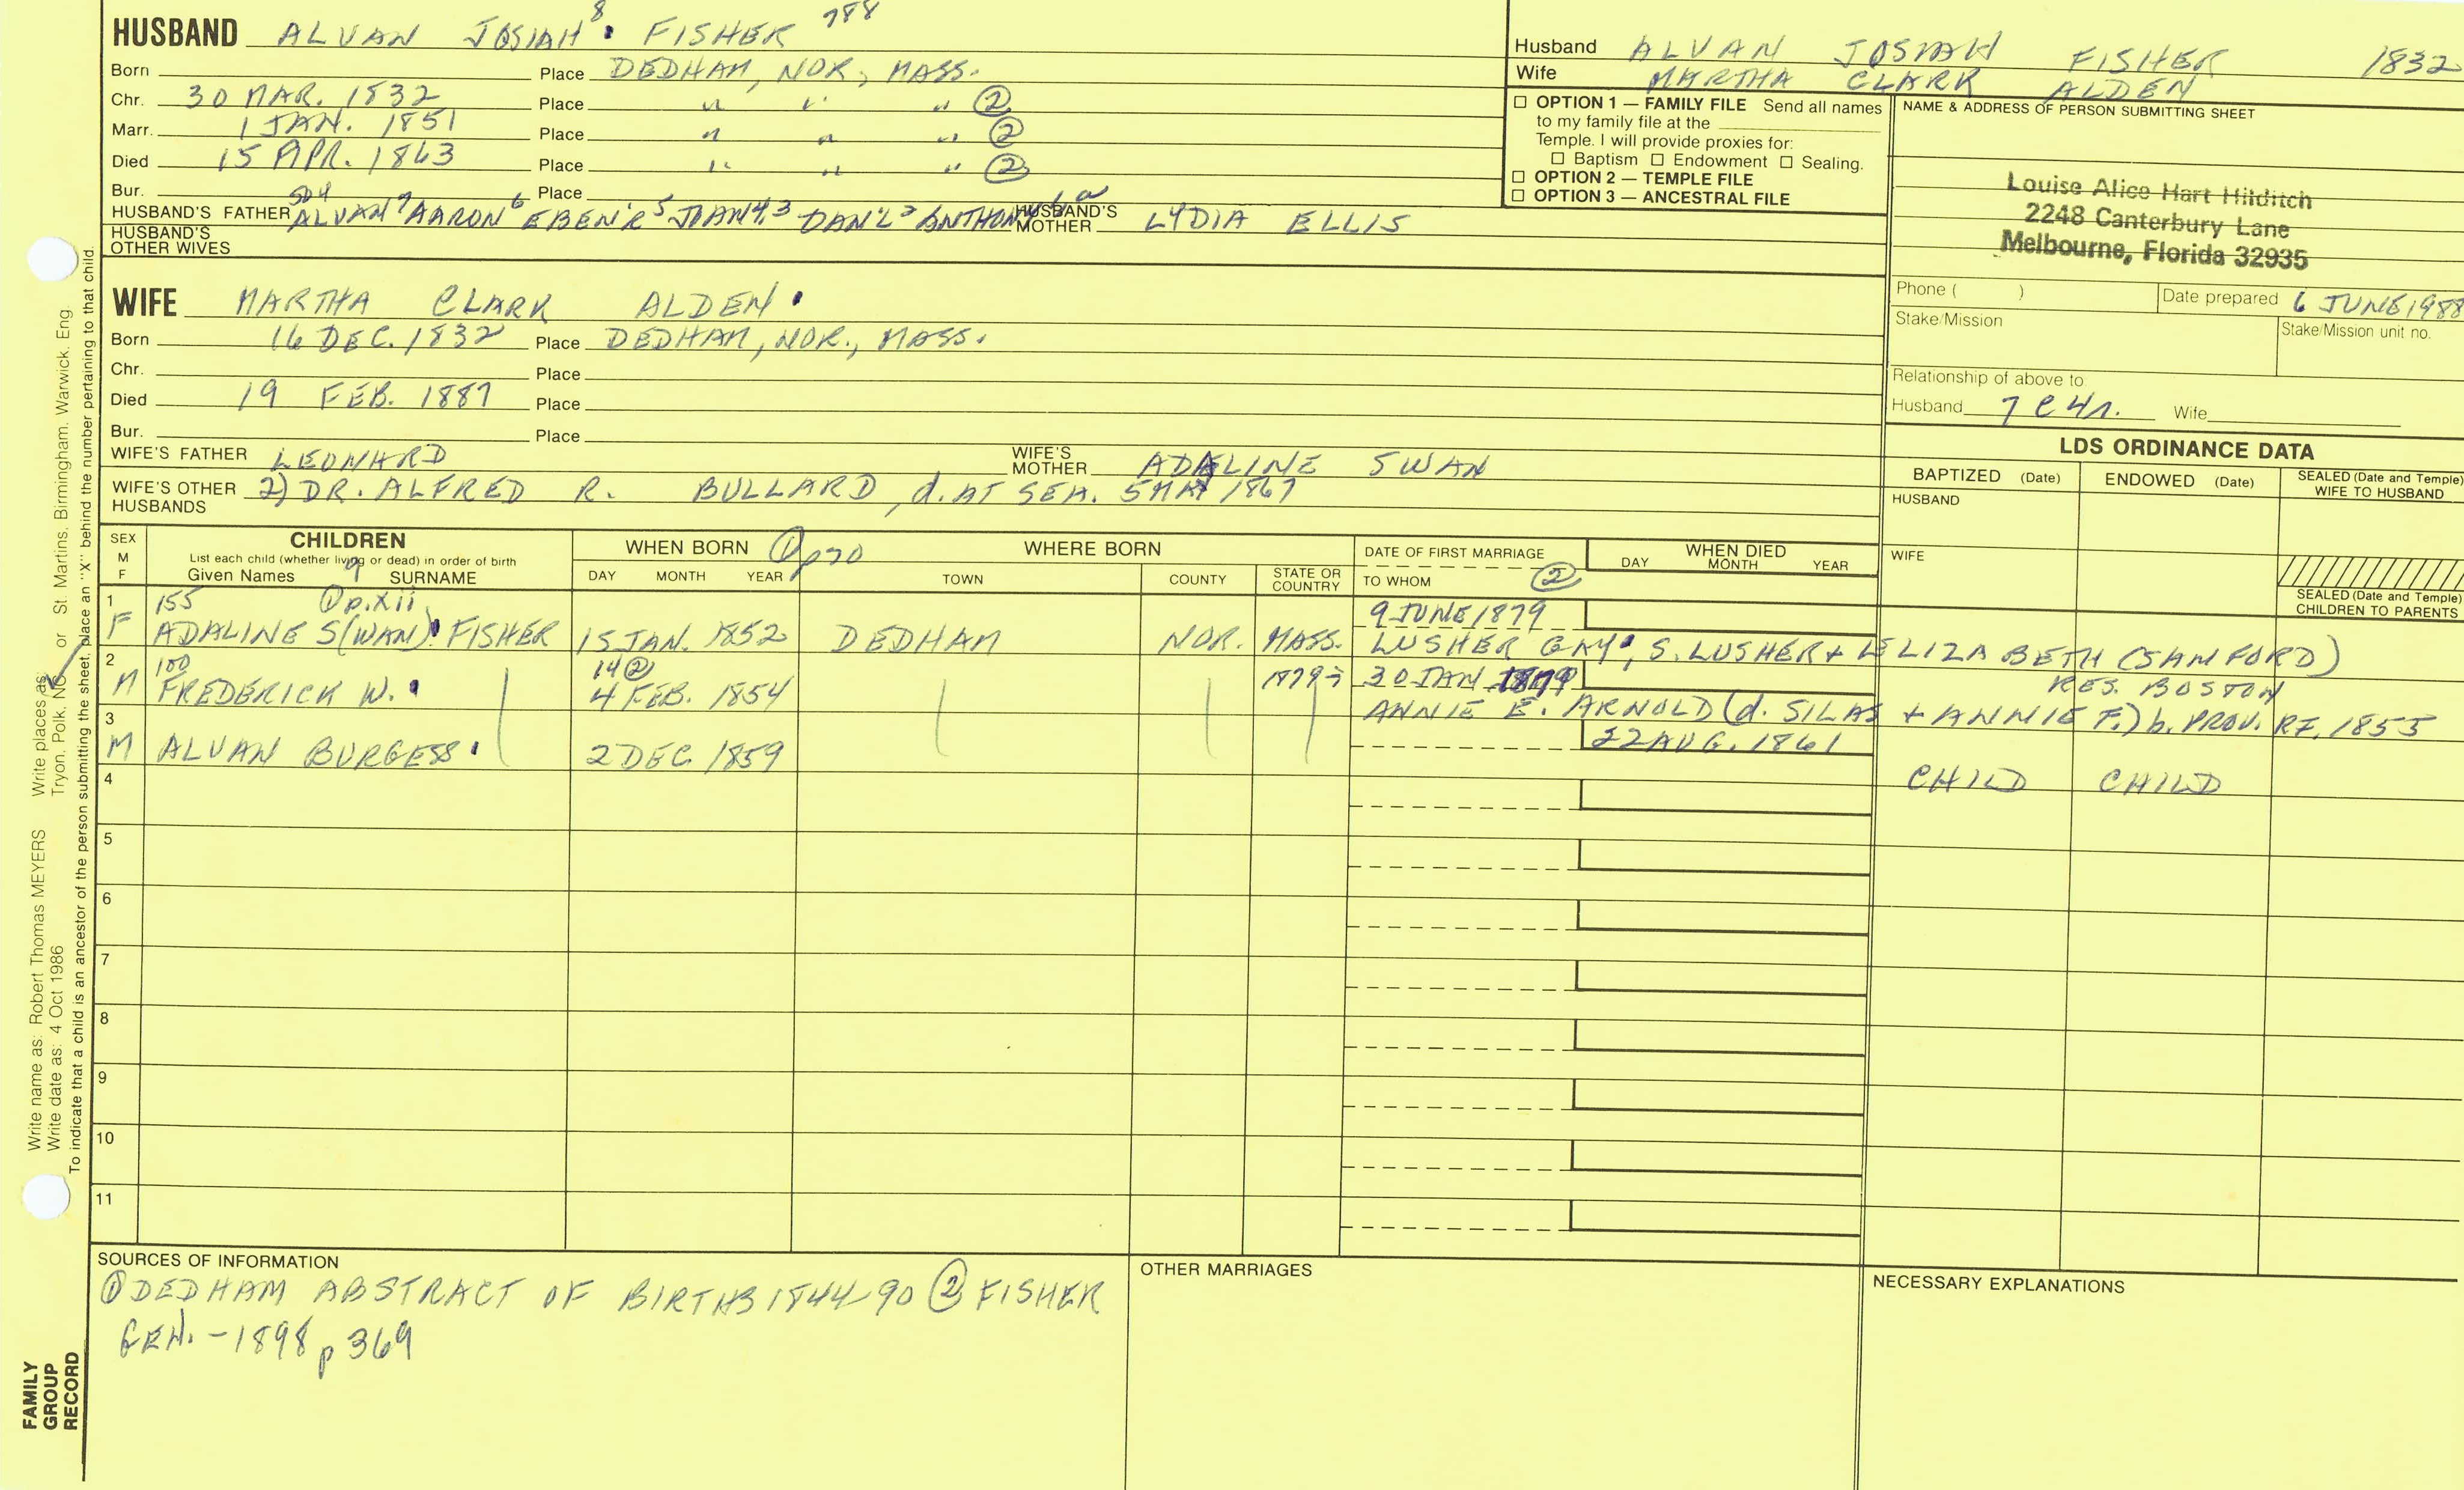 HUSBAND ALVAN JOSIAH 8 FISHER 788
Born Place DEDHAM, NOR., MASS.
Chr. 30 MAR. 1832 Place " " " ②
Marr. 1 JAN. 1851 Place " " " ②
Died 15 APR. 1863 Place " " " ②
Bur. Place
504
HUSBAND'S FATHER ALVAN 7 AARON 6 EBEN'R 5 4,3 DAN'L 2 ANTHONY HUSBAND'S MOTHER LYDIA ELLIS
HUSBAND'S OTHER WIVES
Husband ALVAN JOSIAH FISHER 1832
Wife MARTHA CLARK ALDEN
☐ OPTION 1 — FAMILY FILE Send all names
to my family file at the
Temple. I will provide proxies for:
☐ Baptism ☐ Endowment ☐ Sealing.
☐ OPTION 2 — TEMPLE FILE
☐ OPTION 3 — ANCESTRAL FILE
NAME & ADDRESS OF PERSON SUBMITTING SHEET
Louise Alice Hart Hilditch
2248 Canterbury Lane
Melbourne, Florida 32935
Phone ( ) Date prepared 6 JUNE 1988
Stake/Mission Stake/Mission unit no.
Relationship of above to
Husband 7 C 4 r. Wife
WIFE MARTHA CLARK ALDEN
Born 16 DEC. 1832 Place DEDHAM, NOR., MASS.
Chr. Place
Died 19 FEB. 1887 Place
Bur. Place
WIFE'S FATHER LEONARD WIFE'S MOTHER ADALINE SWAN
WIFE'S OTHER HUSBANDS 2) DR. ALFRED R. BULLARD, d. AT SEA. 5 MAY 1867
LDS ORDINANCE DATA
BAPTIZED (Date) ENDOWED (Date) SEALED (Date and Temple) WIFE TO HUSBAND
HUSBAND
WIFE
SEALED (Date and Temple) CHILDREN TO PARENTS
SEX M F
CHILDREN
List each child (whether living or dead) in order of birth
Given Names SURNAME
WHEN BORN ① p 70 WHERE BORN
DAY MONTH YEAR TOWN COUNTY STATE OR COUNTRY
DATE OF FIRST MARRIAGE
TO WHOM ②
WHEN DIED
DAY MONTH YEAR
1 155 ① p. xii 9 JUNE 1879
F ADALINE S(WAN) FISHER 15 JAN. 1852 DEDHAM NOR. MASS. LUSHER GAY, S. LUSHER + ELIZABETH (SANFORD)
2 100 14 ② 1879 30 JAN 1879 RES. BOSTON
M FREDERICK W. 4 FEB. 1854 ANNIE E. ARNOLD (d. SILAS + ANNIE F.) b. PROV. RI, 1855
3 22 AUG. 1861
M ALVAN BURGESS 2 DEC 1859 CHILD CHILD
4
5
6
7
8
9
10
11
SOURCES OF INFORMATION
① DEDHAM ABSTRACT OF BIRTHS 1844-90 ② FISHER
GEN. - 1898 p 369
OTHER MARRIAGES
NECESSARY EXPLANATIONS
Write name as: Robert Thomas MEYERS Write places as: Tryon. Polk. NC or St. Martins. Birmingham. Warwick. Eng.
Write date as: 4 Oct 1986
To indicate that a child is an ancestor of the person submitting the sheet, place an "X" behind the number pertaining to that child.
FAMILY
GROUP
RECORD